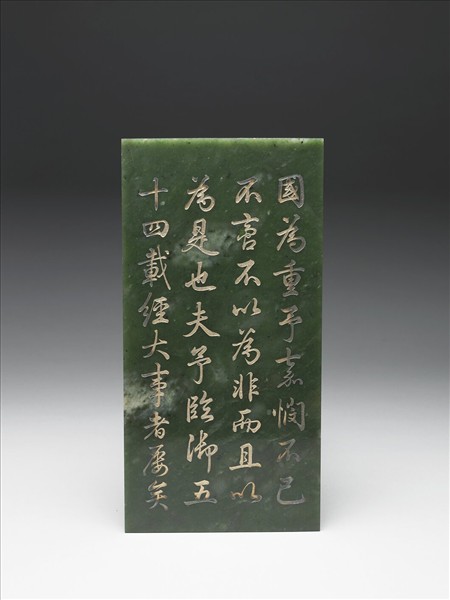 國為重予嘉憫不已
不啻不以為非而且以
為是也夫予臨御五
十四載經大事者屢矣